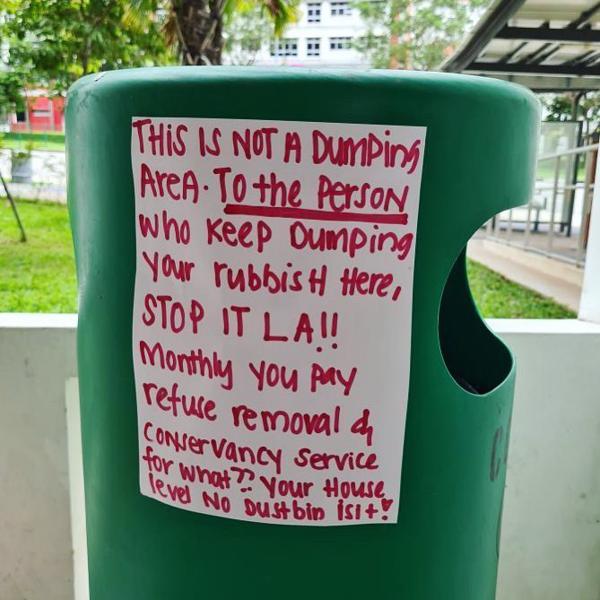 THIS IS NOT A DUMPING
AREA. TO the PERSON
who KEEP DUMPING
your rubbisH Here,
STOP IT LA!!
Monthly you PAY
refuse removal &
CONSERVANCY service
for what?? Your House
level No Dustbin isit!